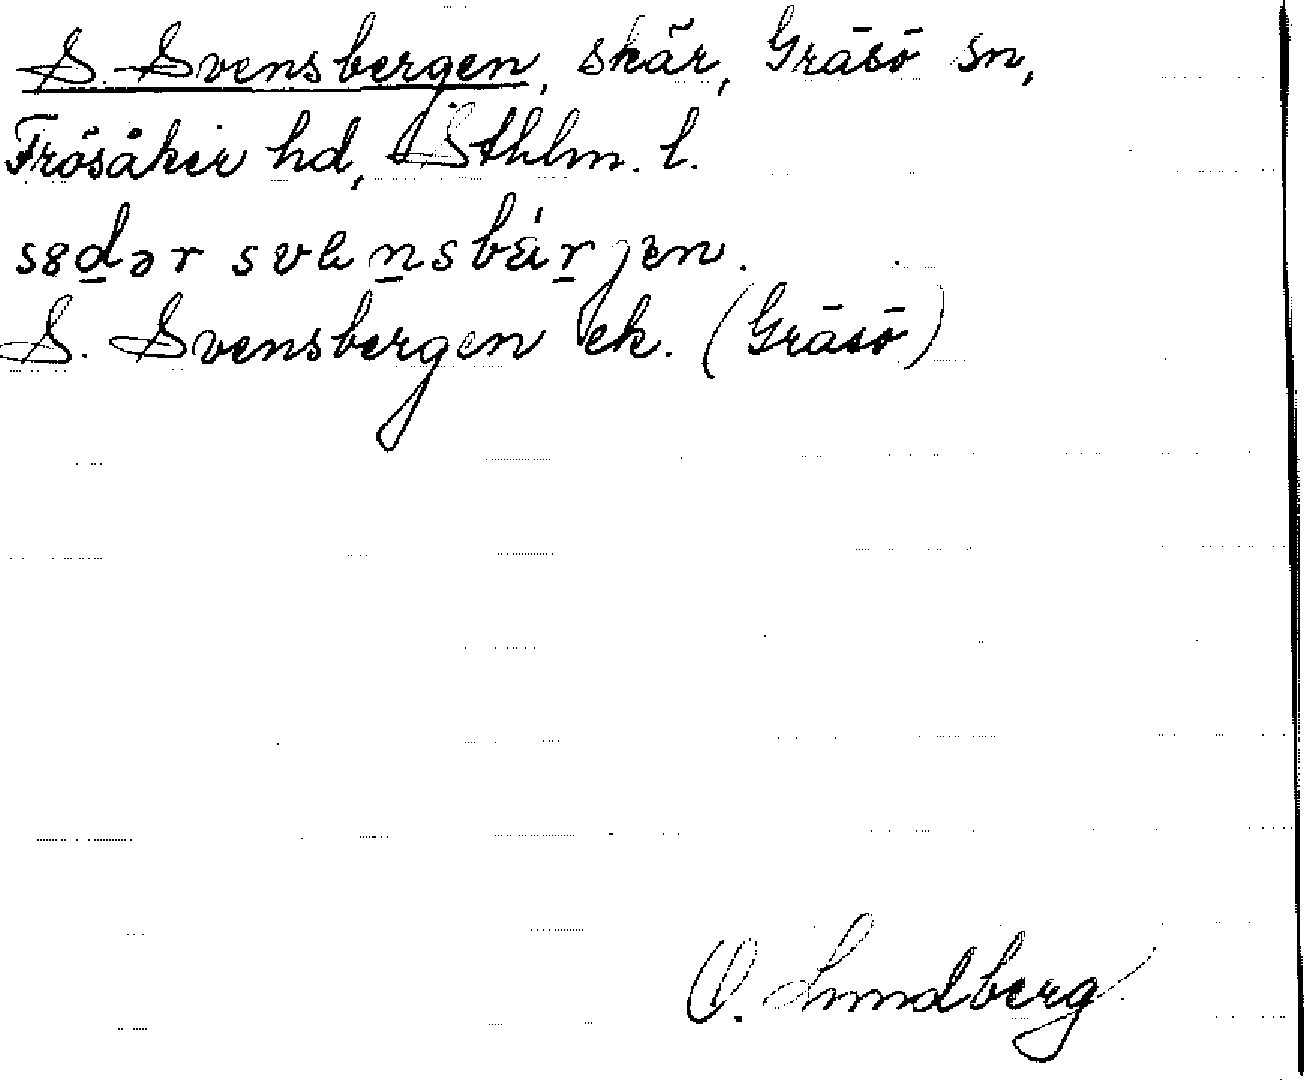 S. Svensbergen, skär, Gräsö sn,
Frösåker hd, Sthlm. l.
S. Svensbergen ek. (Gräsö)
O. Lundberg